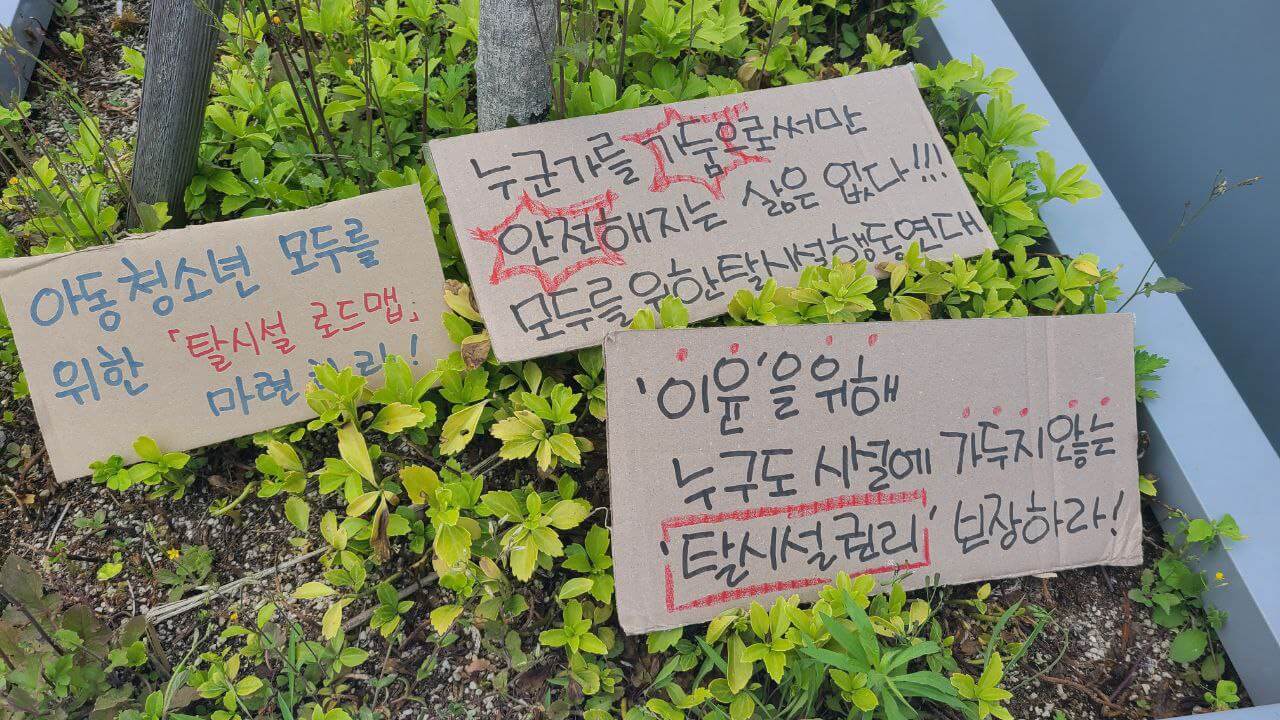 아동청소년 모두를
위한 「탈시설 로드맵」
마련하라!
누군가를 가둠으로써만
안전해지는 삶은 없다!!!
모두를 위한 탈시설행동연대
'이윤'을 위해
누구도 시설에 가두지 않는
'탈시설권리' 보장하라!